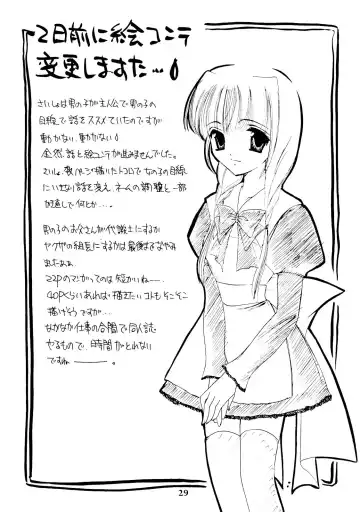 2日前に絵コンテ
変更しますた…
さいしょは男の子が主人公で男の子の
目線で話をススメていたのですが
動かない、動かない
全然、話と絵コンテが進みませんでした。
さいしょ、数ページ描いたトコロで女の子の目線
にいきなり話を変え、ネームの調整と一部
が通して何とか…。
男の子のお父さんが代議士にするか
ヤクザの組長にするかは最後までなやみ
ましたねぇ
22Pのマンガってのは短かいねー
40Pくらいあれば描きたいコトもそこそこ
描けそうですが…
なかなか仕事の合間で同人誌
やるもので、時間がとれない
ですねー。
29